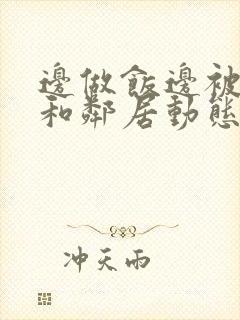 邊做飯邊被
和鄰居動態
冲天雨